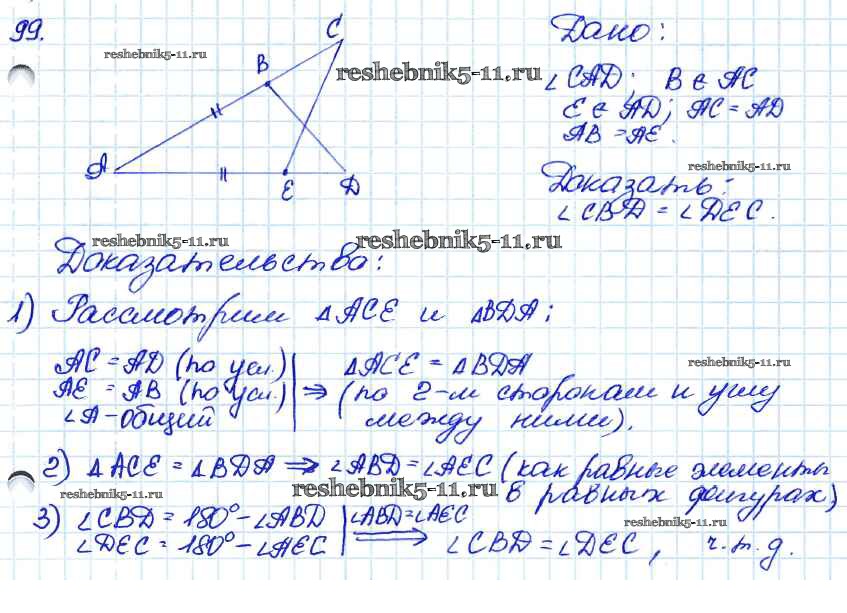 99.
C
Дано:
reshebnik5-11.ru
B
reshebnik5-11.ru
∠CAD; B ∈ AC
E ∈ AD; AC = AD
AB = AE.
A
E
D
reshebnik5-11.ru
Доказать:
∠CBD = ∠DEC.
reshebnik5-11.ru
reshebnik5-11.ru
Доказательство:
1) Рассмотрим △ACE и △BDA;
AC = AD (по усл.)
AE = AB (по усл.)
∠A - общий
⇒
△ACE = △BDA
(по 2-м сторонам и углу
между ними).
reshebnik5-11.ru
2) △ACE = △BDA ⇒ ∠ABD = ∠AEC (как равные элементы
в равных фигурах)
reshebnik5-11.ru
reshebnik5-11.ru
3) ∠CBD = 180° - ∠ABD
∠DEC = 180° - ∠AEC
∠ABD = ∠AEC
⇒
∠CBD = ∠DEC, ч.т.д.
reshebnik5-11.ru